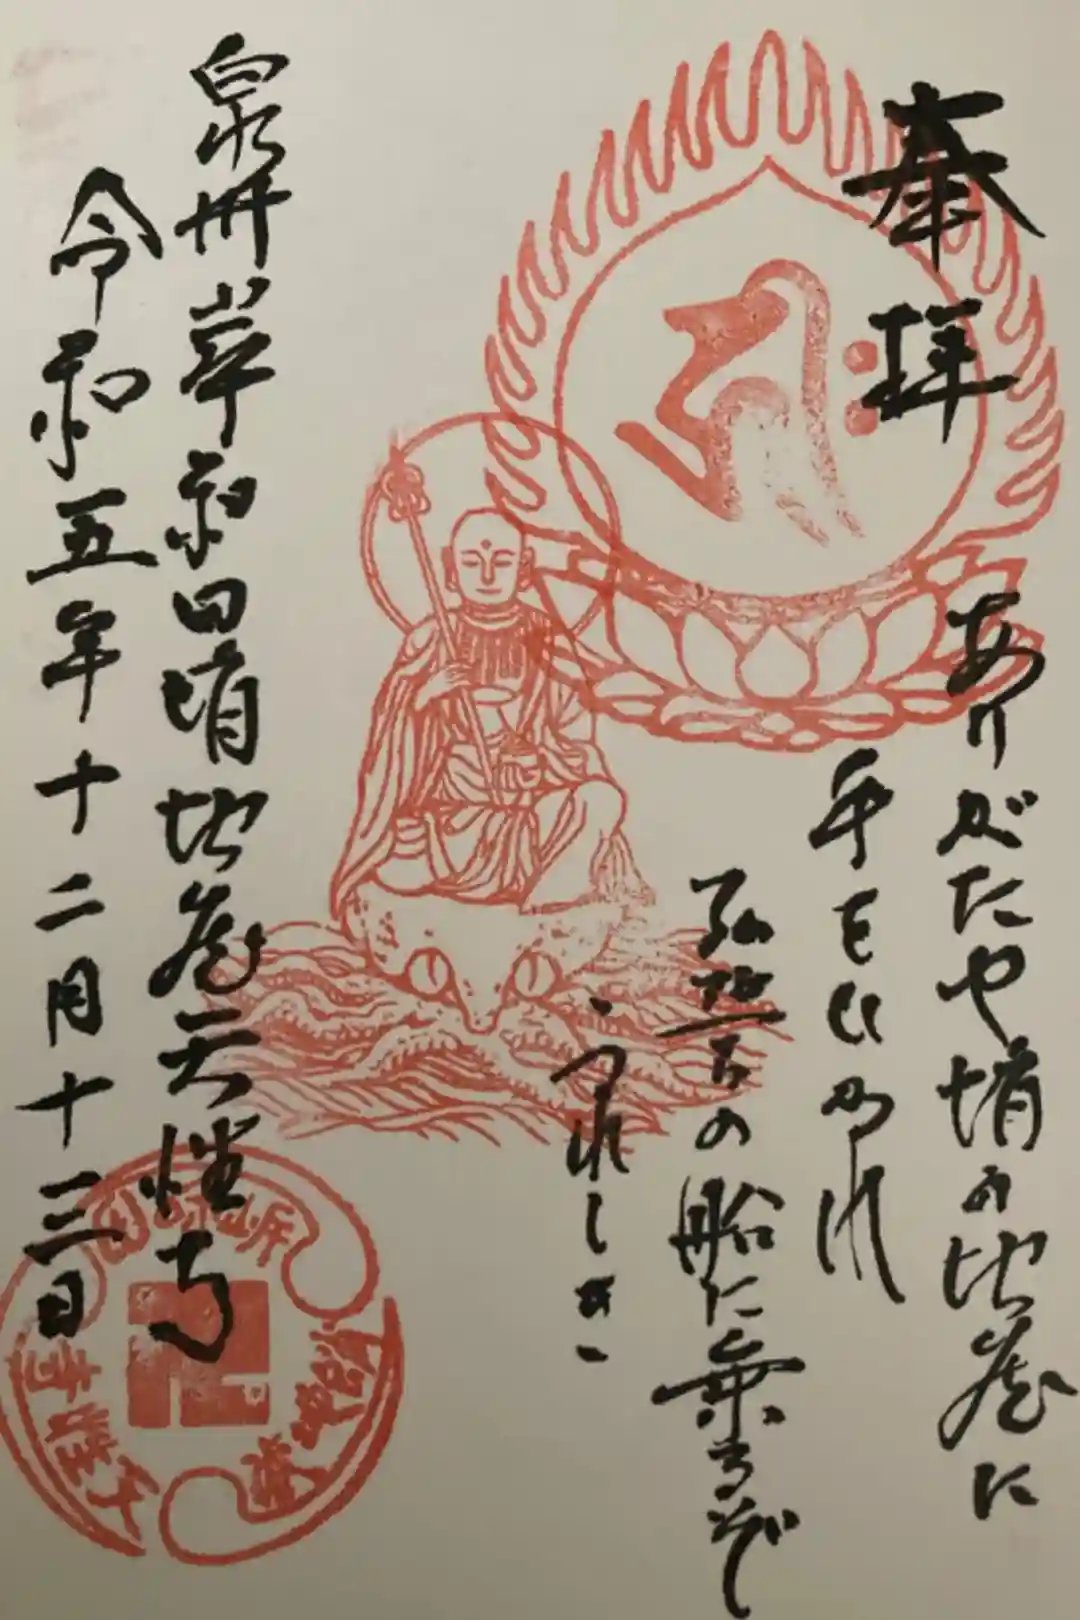 奉拝
ありがたや蛸の地蔵に
手をひかれ
弘誓の船に乗るぞ
うれしき
泉州岸和田蛸地蔵天性寺
令和五年十二月十三日
卍